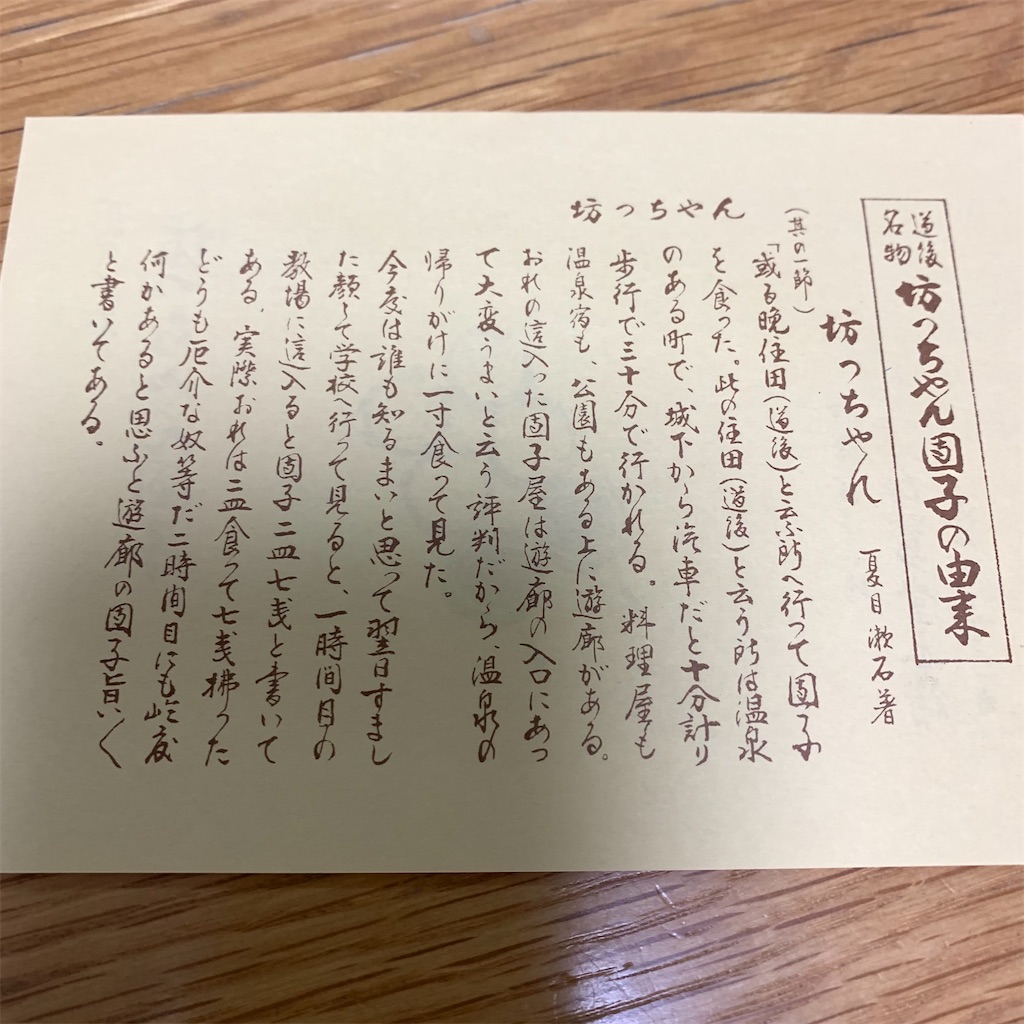 道後名物 坊っちゃん團子の由来
坊っちゃん 夏目漱石著
(其の一節)
坊っちゃん
「或る晩住田(道後)と云ふ所へ行って團子
を食った。此の住田(道後)と云う所は温泉
のある町で、城下から汽車だと十分計り
歩行で三十分で行かれる。料理屋も
温泉宿も、公園もある上に遊廓がある。
おれの這入った團子屋は遊廓の入口にあっ
て大変うまいと云う評判だから、温泉の
帰りがけに一寸食って見た。
今度は誰も知るまいと思って翌日すまし
た顔して学校へ行って見ると、一時間目の
教場に這入ると團子二皿七銭と書いて
ある、実際おれは二皿食って七銭拂った
どうも厄介な奴等だ二時間目にも屹度
何かあると思ふと遊廓の團子旨い〱
と書いてある。